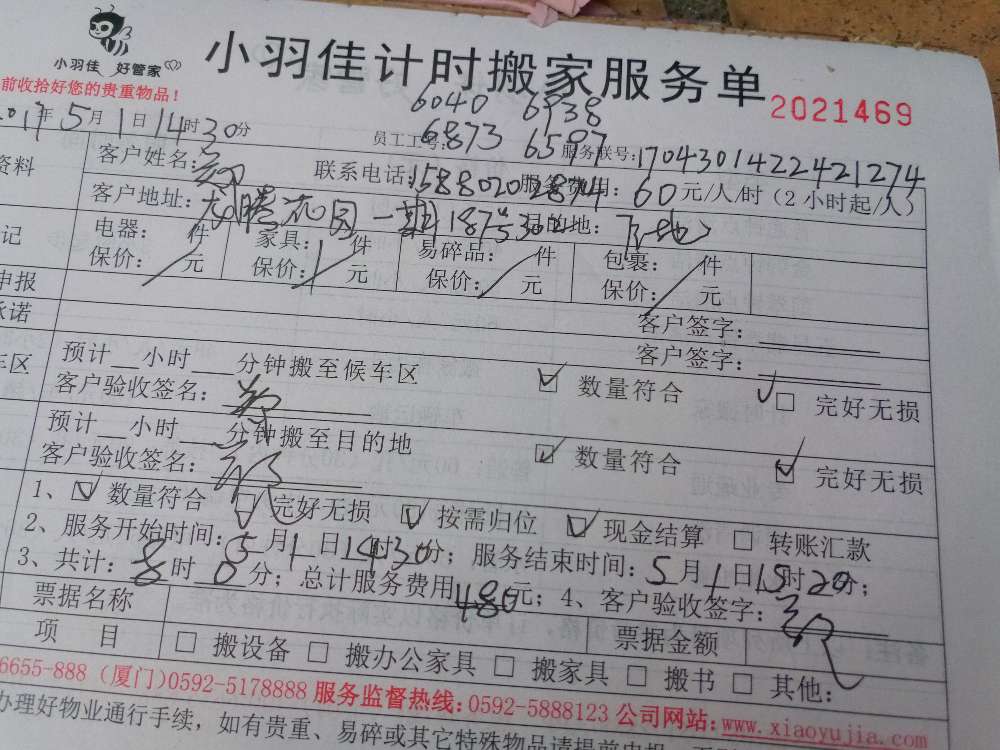 小羽佳 好管家
小羽佳计时搬家服务单
2021469
前收拾好您的贵重物品！
2017年5月1日14时30分
员工工号：
6040 6938
6873 6597
服务联号：17043014224421274
资料
客户姓名：
联系电话：15880202874
服务费用：60元/人/时（2小时起/人）
客户地址：龙腾花园一期187#302
目的地：下地
记
电器： 件 家具：1件 易碎品： 件 包裹： 件
保价： 元 保价： 元 保价： 元 保价： 元
申报
客户签字：
承诺
客户签字：
车区
预计__小时___分钟搬至候车区 数量符合 完好无损
客户验收签名：
预计__小时___分钟搬至目的地 数量符合 完好无损
客户验收签名：
1、 数量符合 完好无损 按需归位 现金结算 转账汇款
2、服务开始时间：5月1日14时30分；服务结束时间：5月1日15时20分；
3、共计：8时0分；总计服务费用480元；4、客户验收签字：
票据名称 票据金额
项 目 搬设备 搬办公家具 搬家具 搬书 其他：
6655-888 (厦门)0592-5178888 服务监督热线：0592-5888123 公司网站：www.xiaoyujia.com
办理好物业通行手续，如有贵重、易碎或其它特殊物品请提前申报